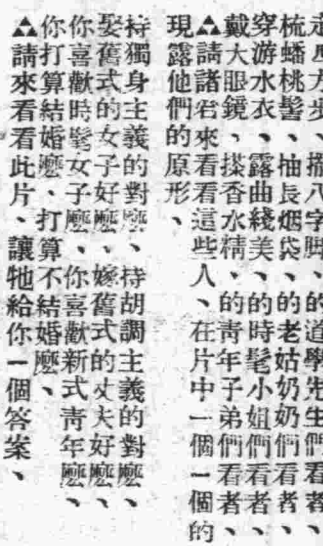 走方步、擺八字脚、的道學先生們看者、
梳蟠桃髻、抽長烟袋、的老姑奶奶們看者、
穿游水衣、露曲綫美、的時髦小姐們看者、
戴大眼鏡、搽香水精、的青年子弟們看者、
▲▲請諸君來看看這些人、在片中一個一個的
現露他們的原形、
持獨身主義的對麽、持胡調主義的對麽、
娶舊式的女子好麽、嫁舊式的丈夫好麽、
你喜歡時髦女子麽、你喜歡新式靑年麽、
你打算結婚麽、打算不結婚麽、
▲▲請來看看此片、讓牠給你一個答案、